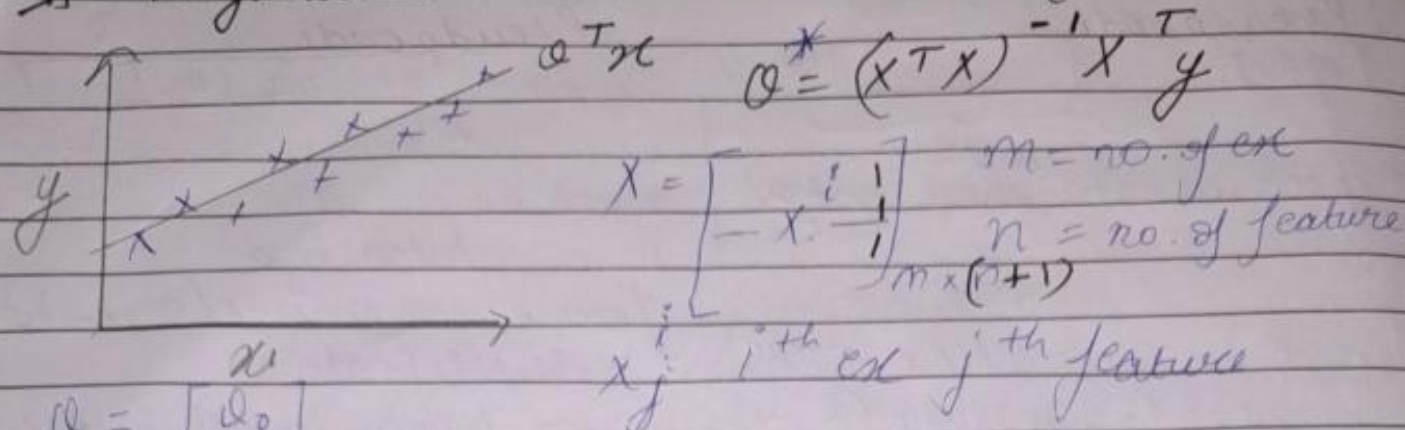 θᵀx
θ* = (XᵀX)⁻¹Xᵀy
y
X = [ — Xⁱ — 1 1 1 ] m×(n+1)
m = no. of ex
n = no. of feature
x
xⱼⁱ : iᵗʰ ex jᵗʰ feature
θ = [θ₀